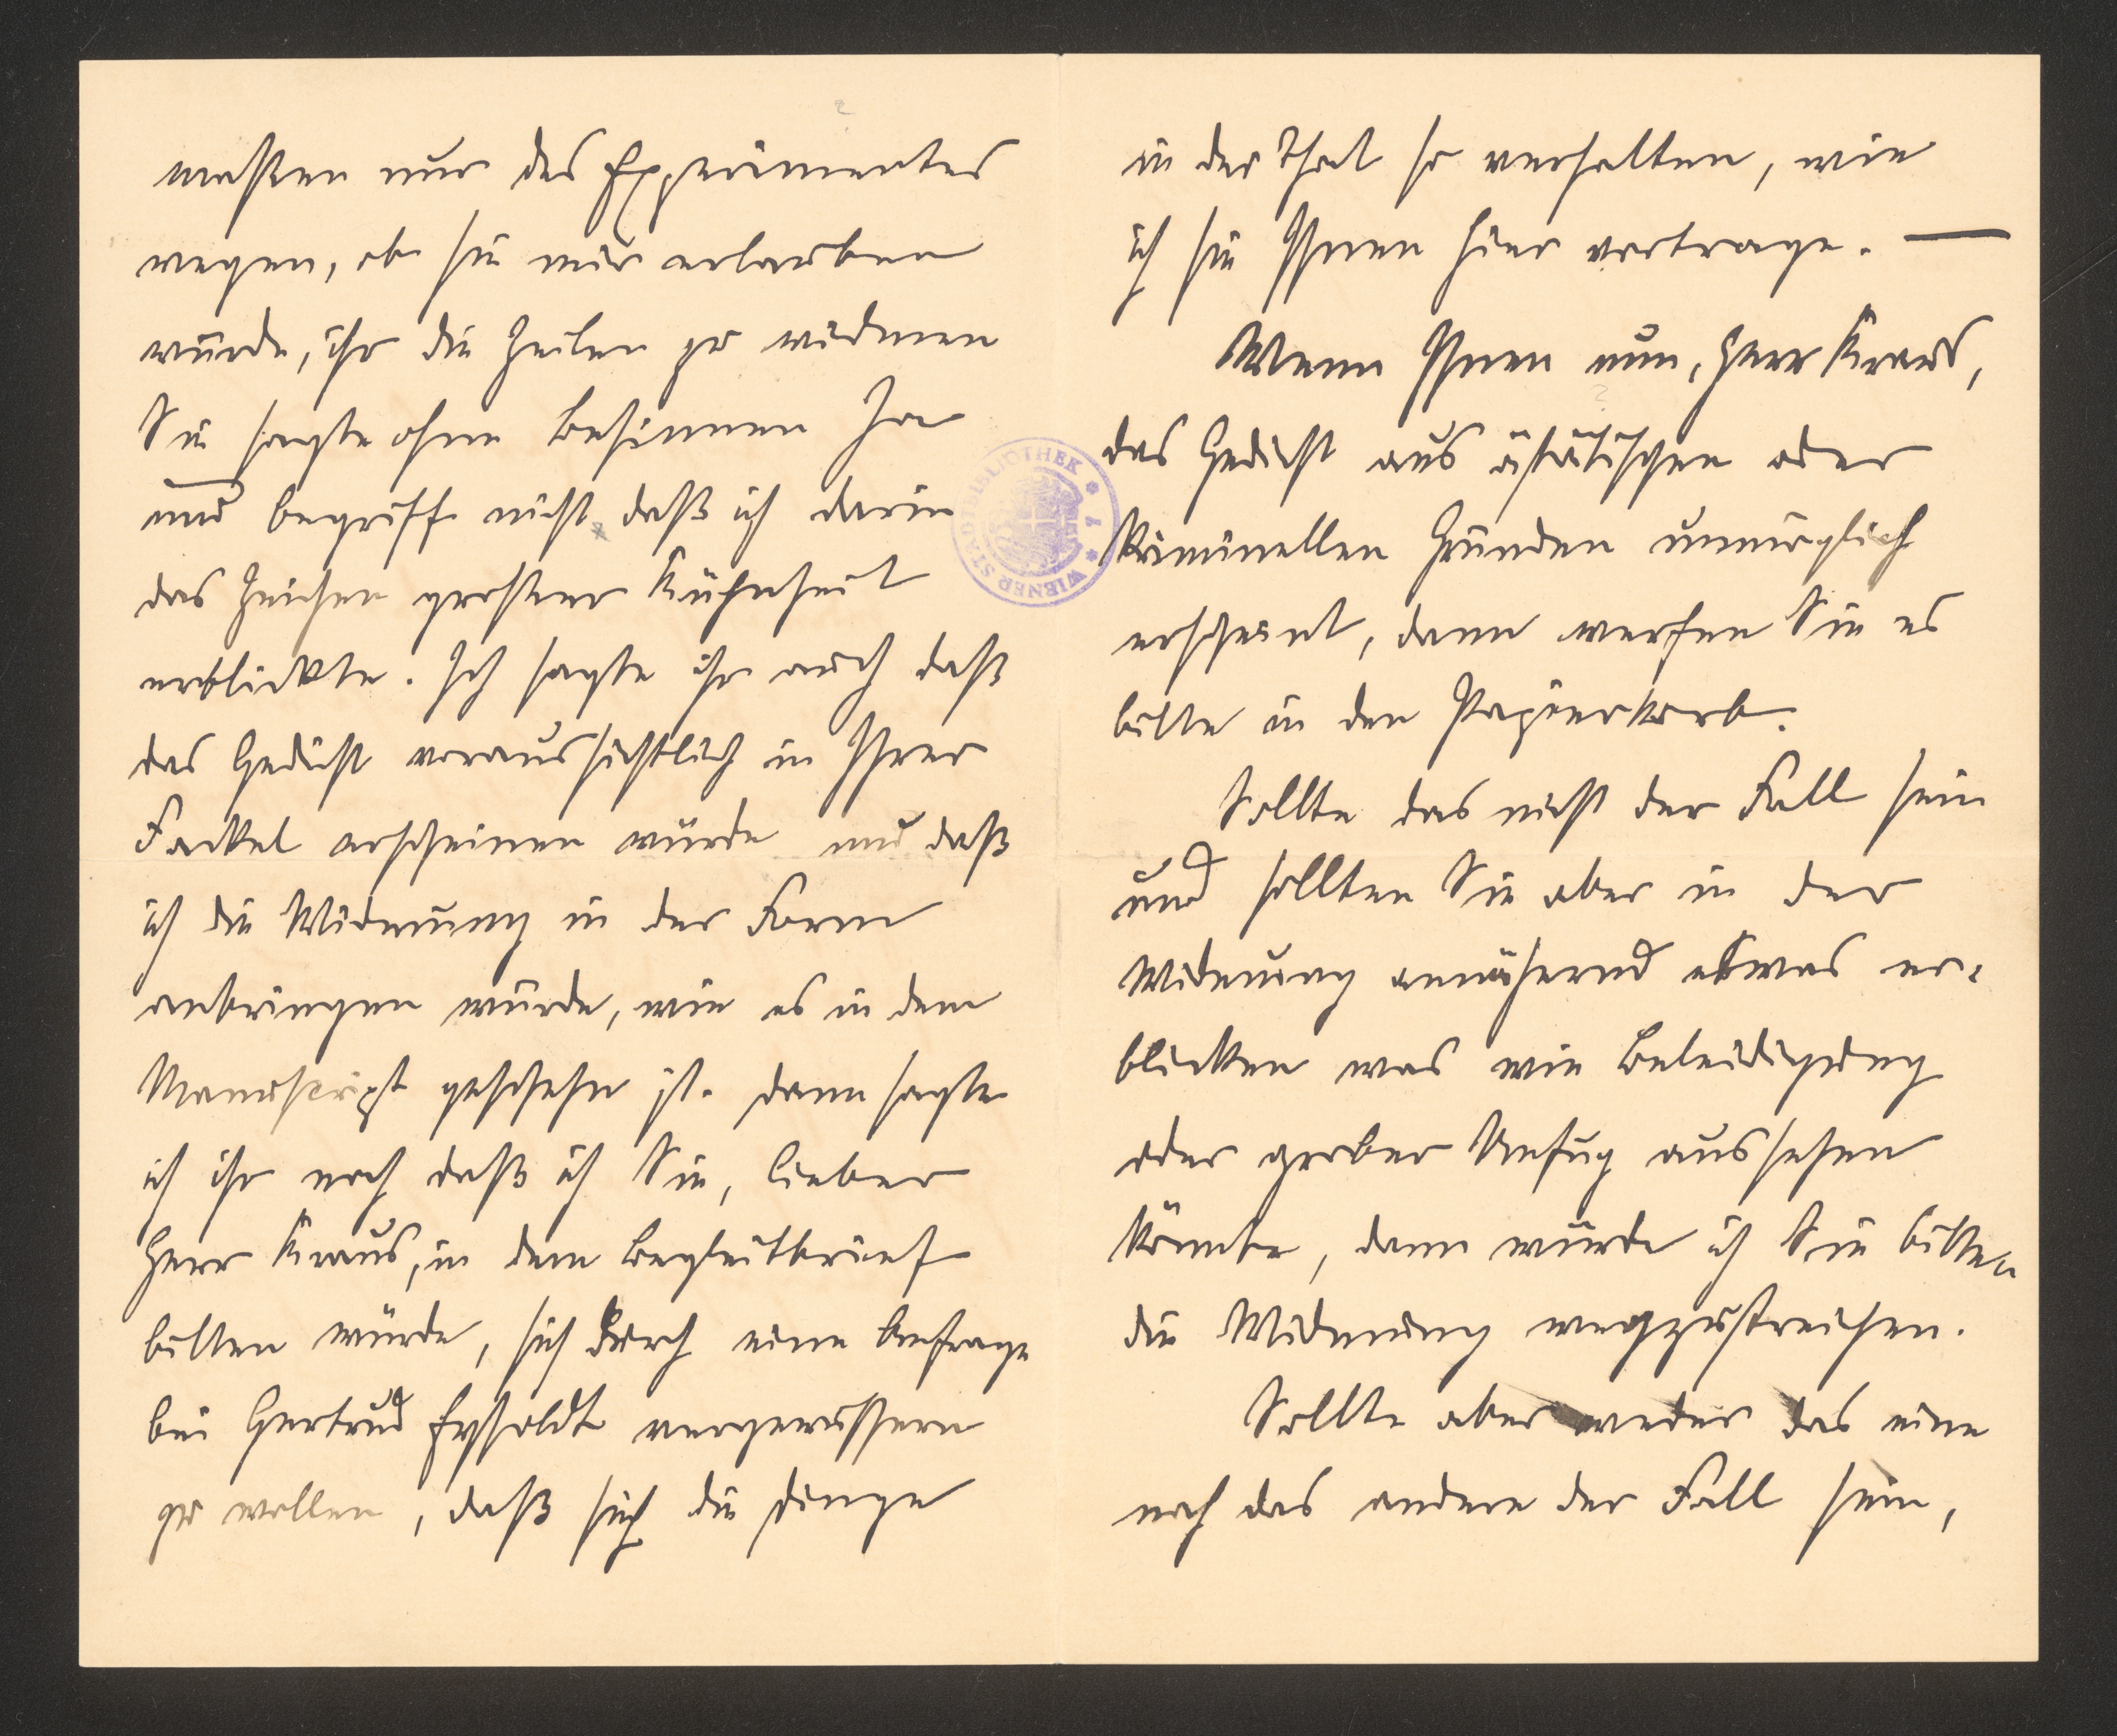 maßen nur des Experimentes
wegen, ob sie mir erlauben
würde, ihr die Zeilen zu widmen
Sie sagte ohne Besinnen Ja
und begriff nicht daß ich darin
das Zeichen großer Kühnheit
erblickte. Ich sagte ihr auch daß
das Gedicht voraussichtlich in Ihrer
Fackel erscheinen würde und daß
ich die Widmung in der Form
anbringen würde, wie es in dem
Manuscript geschehn ist. Dann sagte
ich ihr noch daß ich Sie, lieber
Herr Kraus, in dem Begleitbrief
bitten würde, sich durch eine Anfrage
bei Gertrud Eysoldt vergewissern
zu wollen, daß sich die Dinge
in der That so verhalten, wie
ich sie Ihnen hier vortrage. —
Wenn Ihnen nun, Herr Kraus,
das Gedicht aus ästätischen oder
kriminellen Gründen unmöglich
erscheint, dann werfen Sie es
bitte in den Papierkorb.
Sollte das nicht der Fall sein
und sollten Sie aber in der
Widmung annähernd etwas er-
blicken was wie Beleidigung
oder grober Unfug aussehen
könnte, dann würde ich Sie bitten
die Widmung wegzustreichen.
Sollte aber weder das eine
noch das andere der Fall sein,
WIENER STADTBIBLIOTHEK